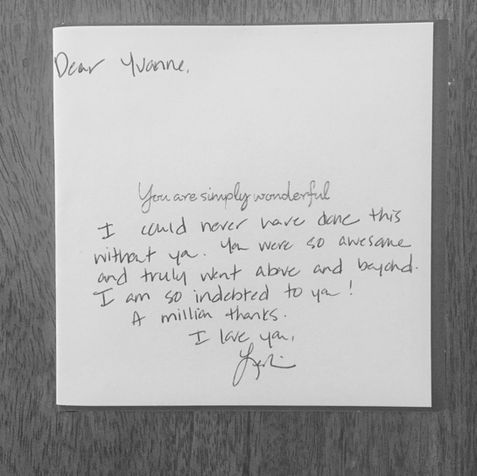 Dear Yvonne,
You are simply wonderful
I could never have done this
without ya. You were so awesome
and truly went above and beyond.
I am so indebted to ya!
A million thanks.
I love you,